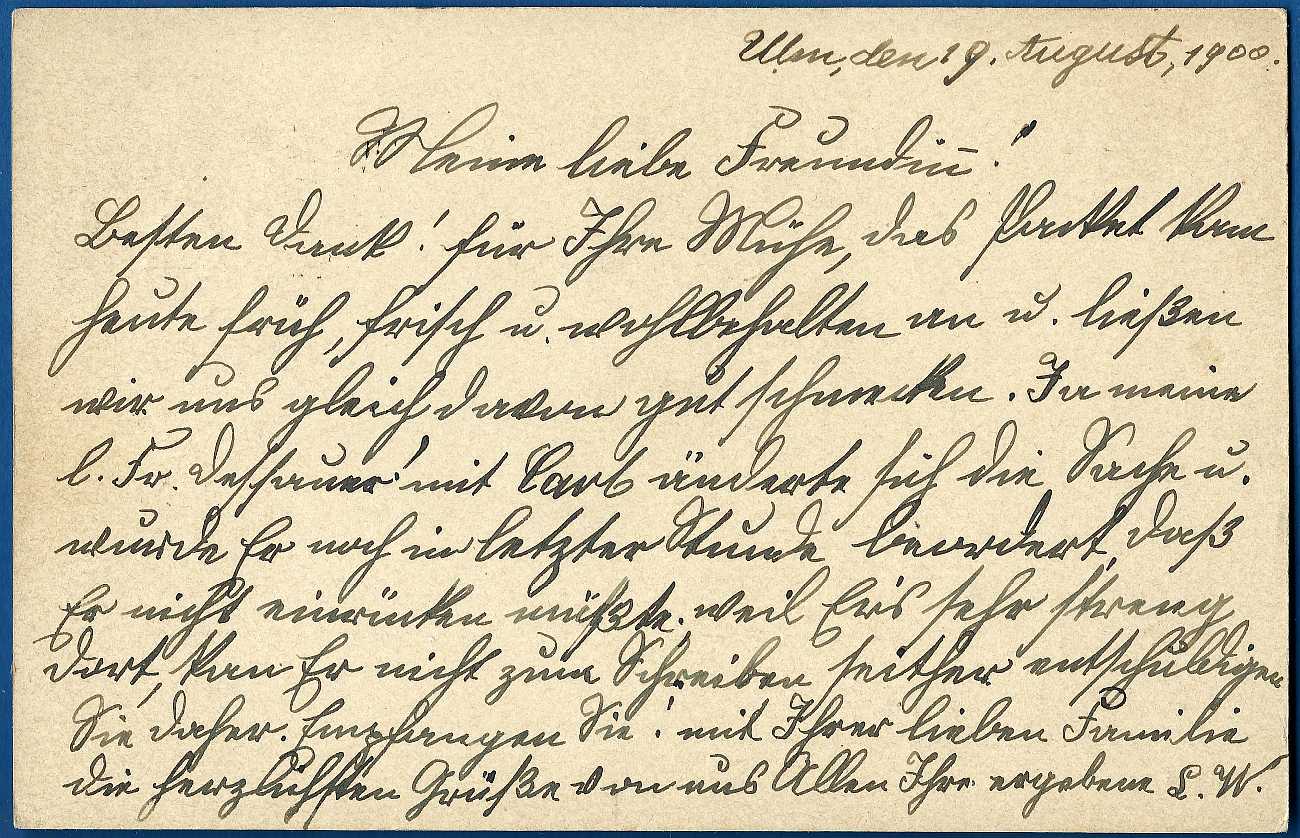 Ulm, den 19. August, 1900.
Meine liebe Freundin!
Besten Dank! für Ihre Mühe, das Packet kam
heute früh, frisch u. wohlbehalten an u. ließen
wir uns gleich davon gut schmecken. Ja meine
l. Fr. Dessauer! mit Carl änderte sich die Sache u.
wurde Er noch in letzter Stunde beordert, daß
Er nicht einrücken müßte. weil Er's sehr streng
dort, kan Er nicht zum Schreiben seither entschuldigen
Sie daher. Empfangen Sie! mit Ihrer lieben Familie
die herzlichsten Grüße von uns Allen Ihre ergebene L. W.